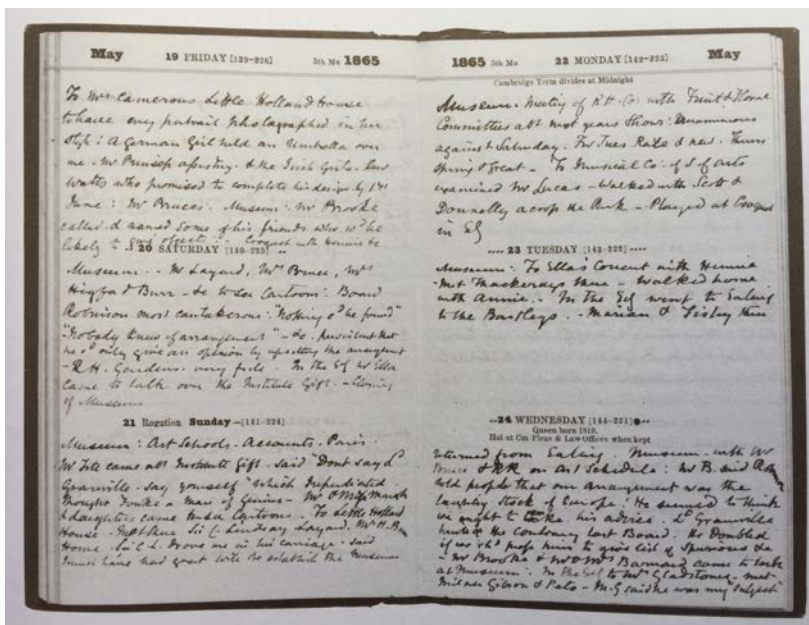 May 19 FRIDAY [139-226] 5th Mo 1865
To Mrs Camerons Little Holland House
to have my portrait Photographed in her
style: A German Girl held an Umbrella over
me. Mr Prinsep a & the Irish Girls. Saw
Watts who promised to complete his design by 1st
June: Mr Bruces. Museum: Mr Brooke
called & named some of his friends who wd be
likely to objects: Croquet with Hennie &c
20 SATURDAY [140-225]
Museum. - Mr Layard, Mr Bruce, Mrs
Higford Burr - &c to see Cartoons: Board
Robinson most cantakerous: "Nothing cd be found"
"Nobody knew of arrangement" - &c. persistent that
he cd only give an opinion by upsetting the arrangement
- R. H. Gardens very full. In the Eg Mr Ella
came to talk over the Institute Gift. - Closing
of Museum
21 Rogation Sunday - [141-224]
Museum: Art Schools. Accounts. Paris.
Mr Tite came abt Institute Gift. Said "Dont say Ld
Granville - say yourself" which I repudiated.
Thought Fowke a man of Genius -
& Daughters came to see Cartoons. To Little Holland
House. Met there Sir C. Lindsay Layard. Mrs H. B.
Home Sir C L Drove me in his carriage - said
I must have had great with to establish the Museum
1865 5th Mo 22 MONDAY [142-223] May
Cambridge Term divides at Midnight
Museum. Meeting of R H. Co: with Fruit & Floral
Committees abt next years Shows: Unanimous
against Saturday. For Tues Rate & new. Thurs
Spring & Great - To Musical Co: of S of Arts
examined Mr Lucas - Walked with Scott &
Donnelly across the Park - Played at Croquet
in Eg
23 TUESDAY [143-222]
Museum: To Ellas Concert with Hennie
- Met Thackerays there - Walked home
with Annie. - In the Eg went to Ealing
to the Bartleys. - Marian & there
24 WEDNESDAY [144-221]
Queen born 1819.
Hol at Com Pleas & Law Offices when kept
Returned from Ealing. Museum. with Mr
Bruce & RR on Art Schedule: Mr B. said
told people that our arrangement was the
laughing stock of Europe. He seemed to think
we ought to take his advice. Ld Granville
the Contrary last Board. He Doubted
if we shd him to give list of Spurious &c
- Mr Brooke & Mr & Mrs Barnard came to look
at Museum: In the Eg to Mrs Gladstones - met
Milner Gibson & Peto - Mr G said he was my "subject"